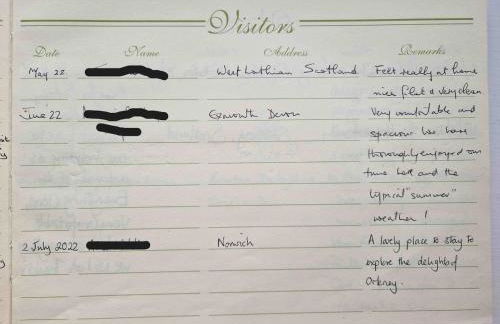 Visitors
Date Name Address Remarks
May 22 West Lothian Scotland Felt really at home
nice flat & very clean
June 22 Exmouth Devon Very comfortable and
spacious We have
thoroughly enjoyed our
time here and the
typical "summer"
weather!
2 July 2022 Norwich A lovely place to stay to
explore the delights of
Orkney.